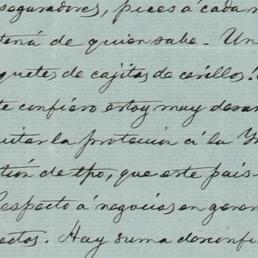 seguradores, pues á cada
de quien sabe. Un
quetes de cajitas de cerillos!
te confiero estoy muy
quitar la proteccion á la
tion de tpo, que este pais
Respecto á negocios en gener
ectos. Hay suma desconfi